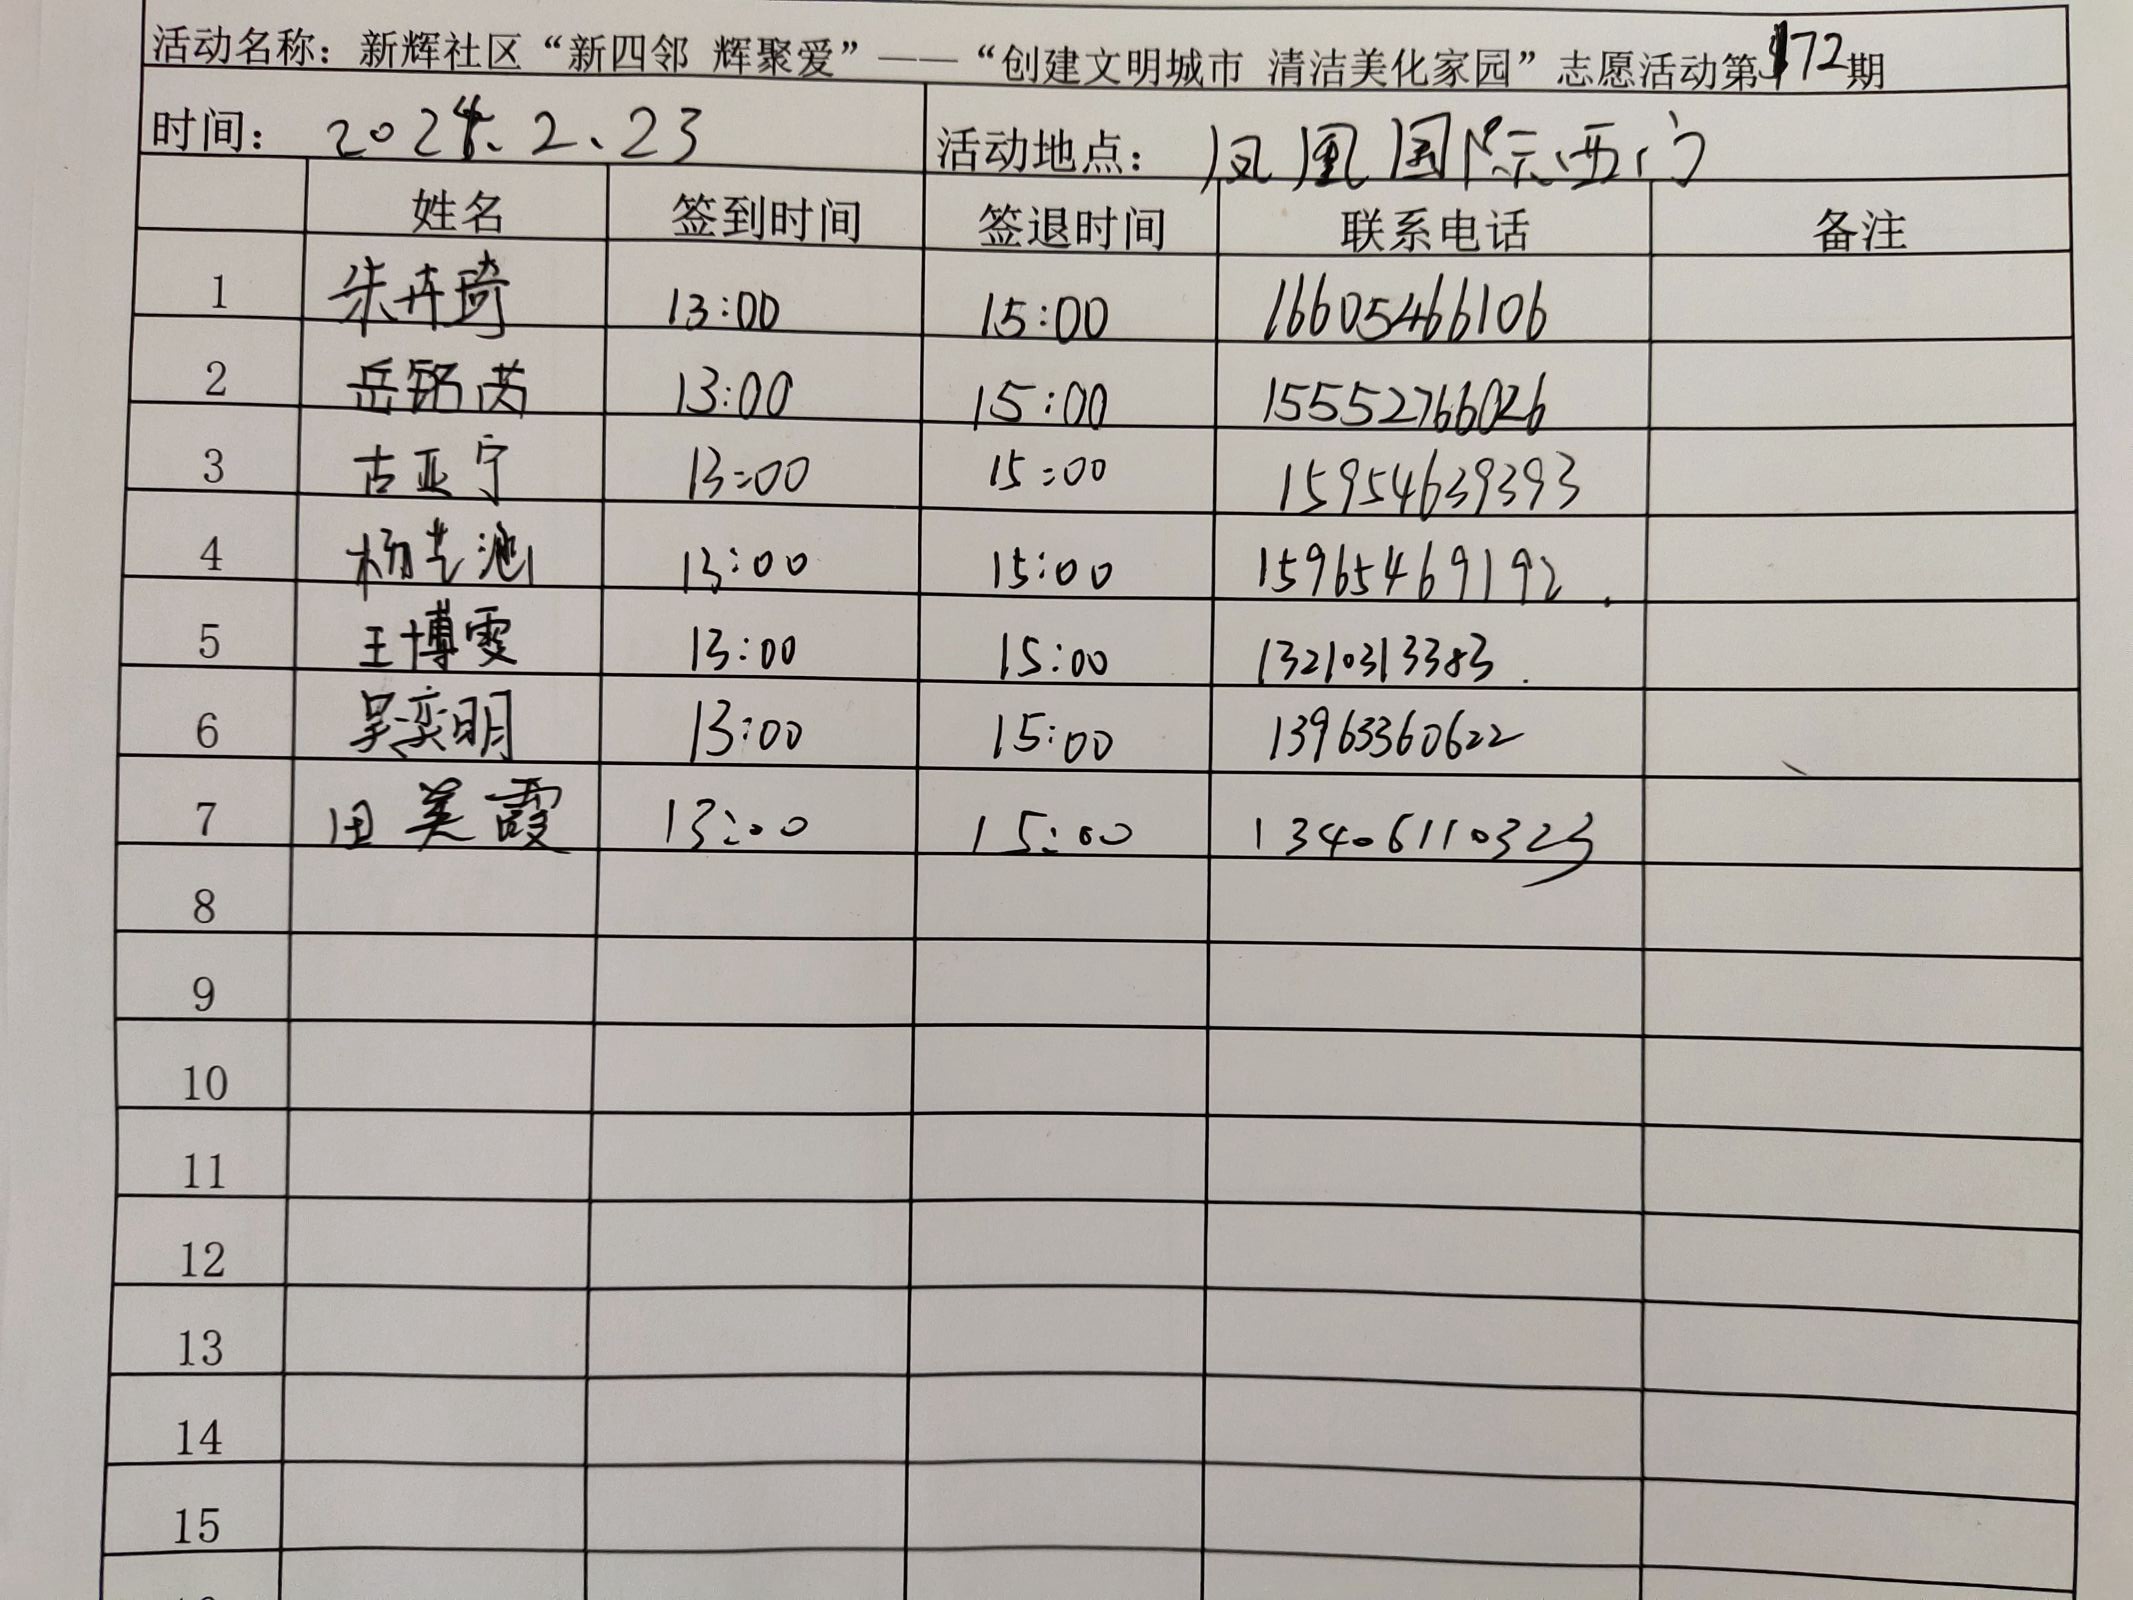 活动名称：新辉社区“新四邻 辉聚爱”——“创建文明城市 清洁美化家园”志愿活动第172期
时间： 2024.2.23 活动地点： 凤凰国际西门
姓名 签到时间 签退时间 联系电话 备注
1 朱卉琦 13:00 15:00 16605466106
2 岳铭芮 13:00 15:00 15552766026
3 古亚宁 13:00 15:00 15954639393
4 杨艺池 13:00 15:00 15965469192
5 王博雯 13:00 15:00 13210313383
6 吴奕明 13:00 15:00 13963360622
7 田美霞 13:00 15:00 13406110323
8
9
10
11
12
13
14
15